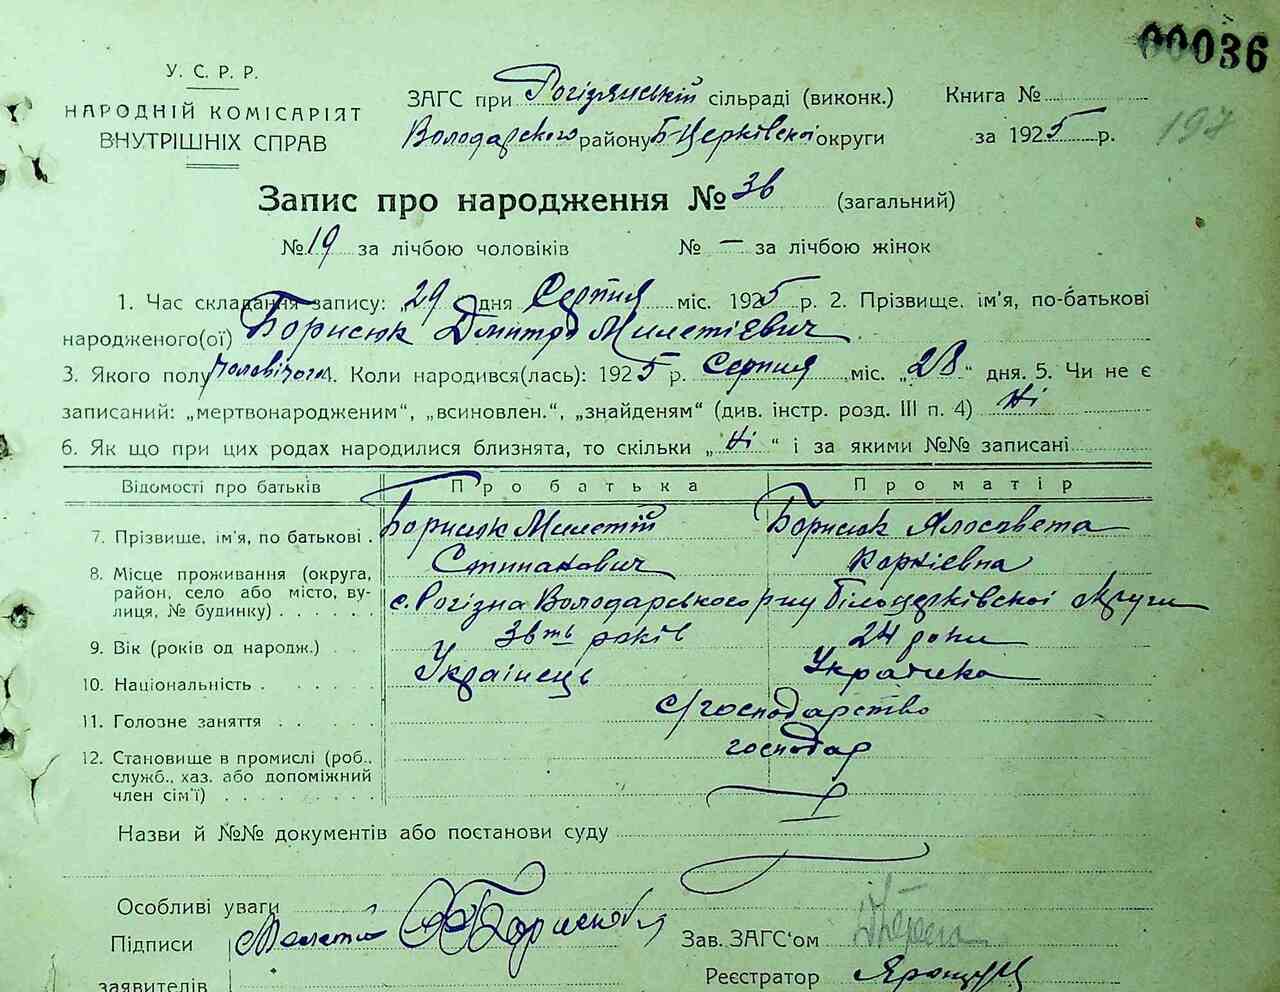 00036
У. С. Р. Р.
НАРОДНІЙ КОМІСАРІЯТ
ВНУТРІШНІХ СПРАВ
ЗАГС при Рогізянській сільраді (виконк.) Книга №
Володарского району Б-Церківської округи за 1925 р.
197
Запис про народження № 36 (загальний)
№ 19 за лічбою чоловіків № — за лічбою жінок
1. Час складання запису: „29 дня Серпня міс. 1925 р. 2. Прізвище, ім'я, по-батькові
народженого(ої) Борисюк Дмитро Милетієвич
3. Якого полу чоловічого 4. Коли народився(лась): 1925 р. Серпня міс. „28" дня. 5. Чи не є
записаний: „мертвонародженим", „всиновлен.", „знайденям" (див. інстр. розд. III п. 4) Ні
6. Як що при цих родах народилися близнята, то скільки „Ні" і за якими №№ записані
Відомості про батьків Про батька Про матір
7. Прізвище, ім'я, по батькові . Борисюк Милетій Борисюк Ялосавета
Стипанович Корнієвна
8. Місце проживання (округа,
район, село або місто, ву-
лиця, № будинку) с. Рогізна Володарського рну Білоцерківської Округи
9. Вік (років од народж.) 36ть років 24 роки
10. Національність Українець Українка
11. Голозне заняття с/господарство
12. Становище в промислі (роб.,
служб., хаз. або допоміжний
член сім'ї) господар
Назви й №№ документів або постанови суду
Особливі уваги
Підписи Зав. ЗАГС'ом
заявителів Реєстратор